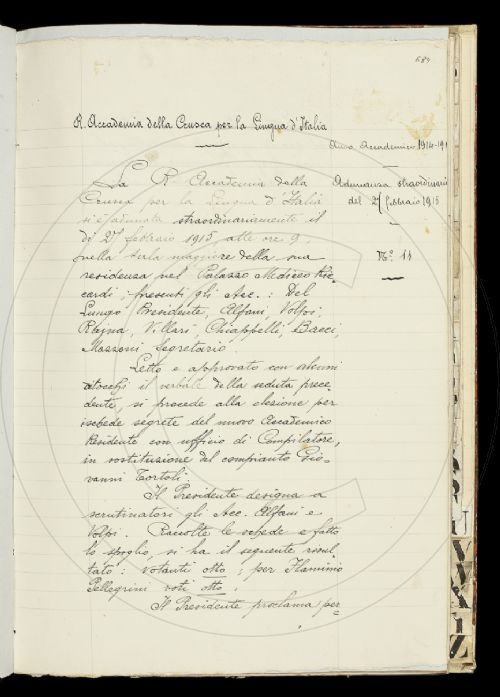 684
R. Accademia della Crusca per la Lingua d'Italia
Anno Accademico 1914-191
La R. Accademia della
Crusca per la Lingua d'Italia
si è adunata straordinariamente il
dì 27 febbraio 1915, alle ore 9,
nella Sala maggiore della sua
residenza nel Palazzo Mediceo Ric-
cardi; presenti gli Acc.: Del
Lungo Presidente, Alfani, Volpi,
Rajna, Villari, Chiappelli, Bacci,
Mazzoni Segretario.
Adunanza straordinaria
del 27 febbraio 1915
N.º 11
Letto e approvato con alcuni
ritocchi il verbale della seduta prece-
dente, si procede alla elezione per
ischede segrete del nuovo Accademico
Residente con ufficio di Compilatore,
in sostituzione del compianto Gio-
vanni Tortoli.
Il Presidente designa a
scrutinatori gli Acc. Alfani e
Volpi. Raccolte le schede e fatto
lo spoglio, si ha il seguente resul-
tato: votanti otto; per Flaminio
Pellegrini voti otto.
Il Presidente proclama per=